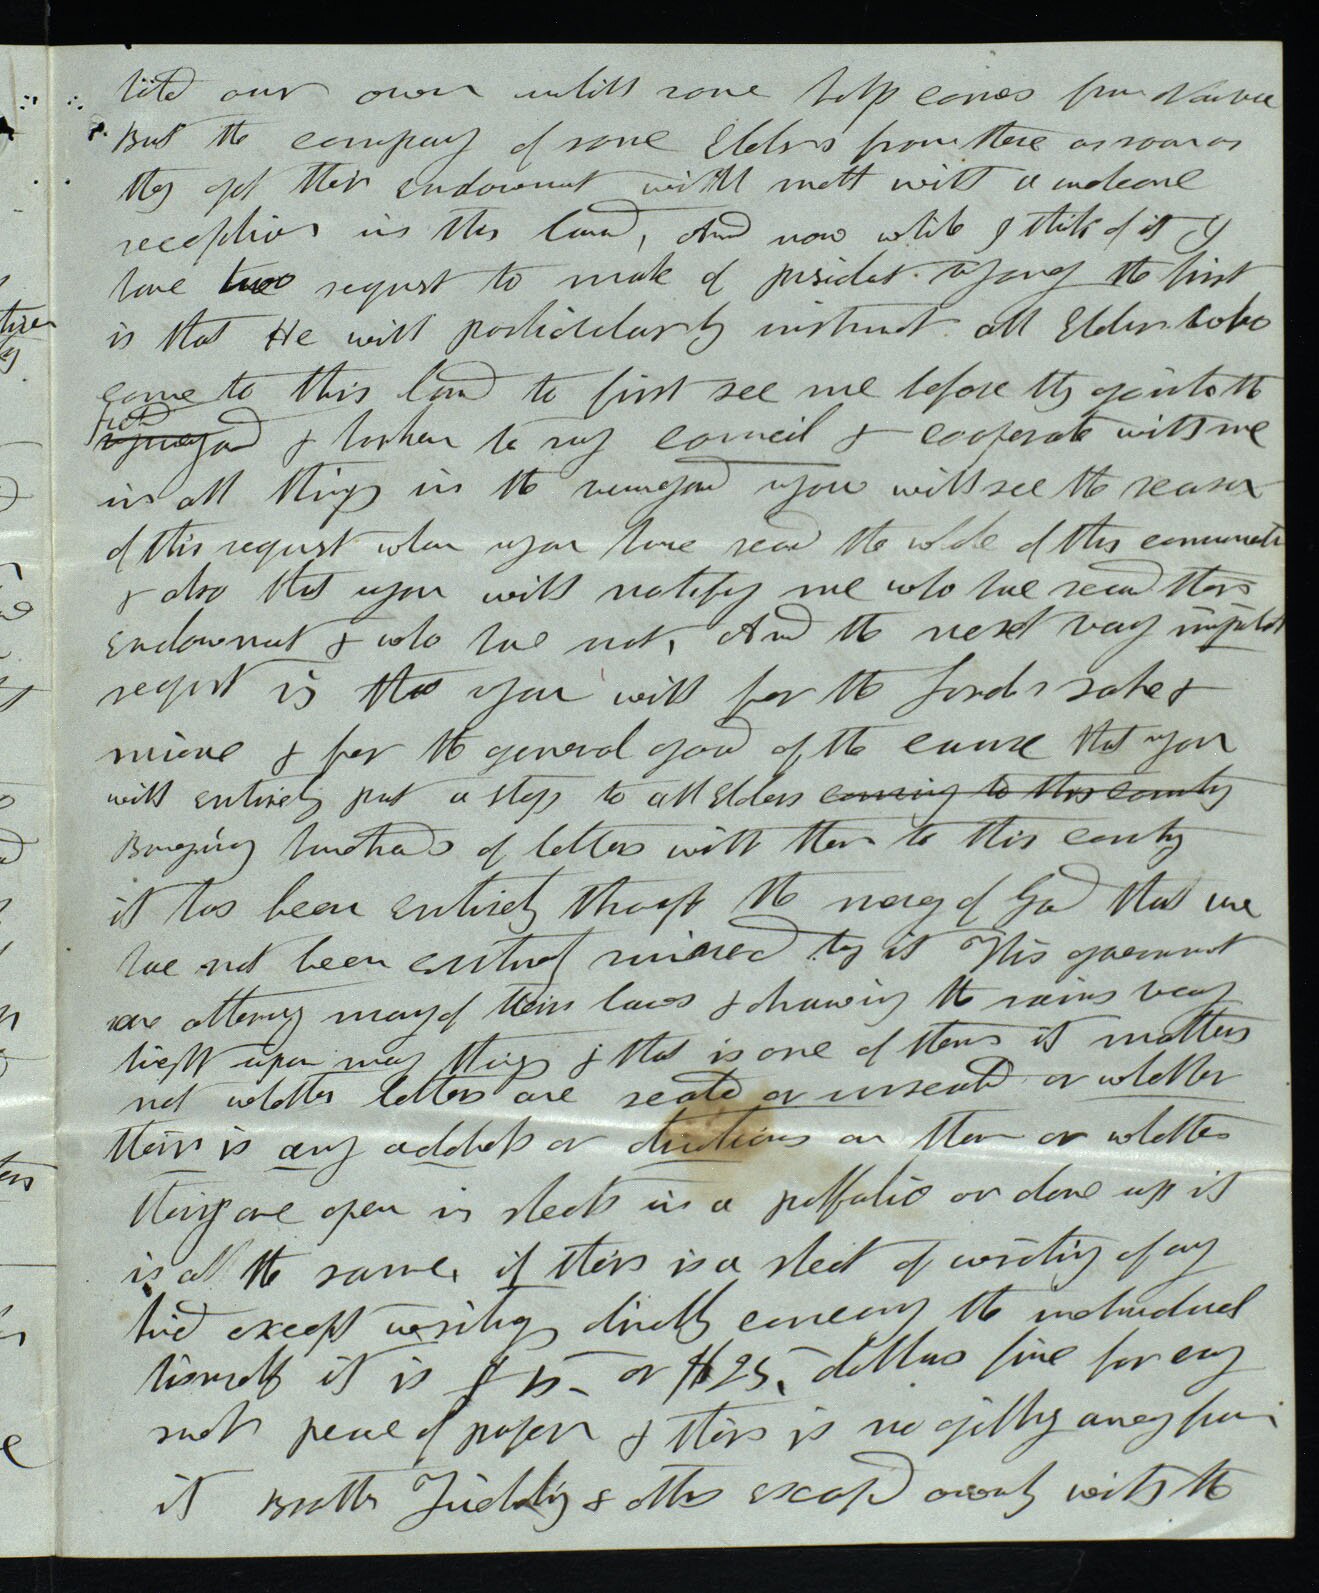 hold our own untill some help comes from Nauvoo
But the company of some Elders from there as soon as
they get their endowment will meet with a welcome
reception in this land, And now while I think of it I
have two request to make of president Young the first
is that He will particularly instruct all Elders who
come to this land to first see me before they go into the
field vineyard & harken to my council & cooperate with me
in all things in the vineyard you will see the reason
of this request when you have read the whole of this
& also that you will notify me who have recd their
Endowment & who have not, And the next very important
request is that you will for the Lords sake &
mine & for the general good of the cause that you
will entirely put a stop to all Elders coming to this country
Bringing hundreds of letters with them to this country
it has been entirely through the mercy of God that we
have not been entirely ruined by it This government
are altering many of their laws & drawing the reins very
tight upon many things & that is one of them it matters
not whether letters are seald or unseald or whether
their is any address or directions on them or whether
they are open in sheets in a or done up it
is all the same, if their is a sheet of writing of any
kind except writings directly concerning the individual
himself it is $15- or $25, dollars fine for evry
such peace of paper & their is no getting away from
it Brother & others escaped with the